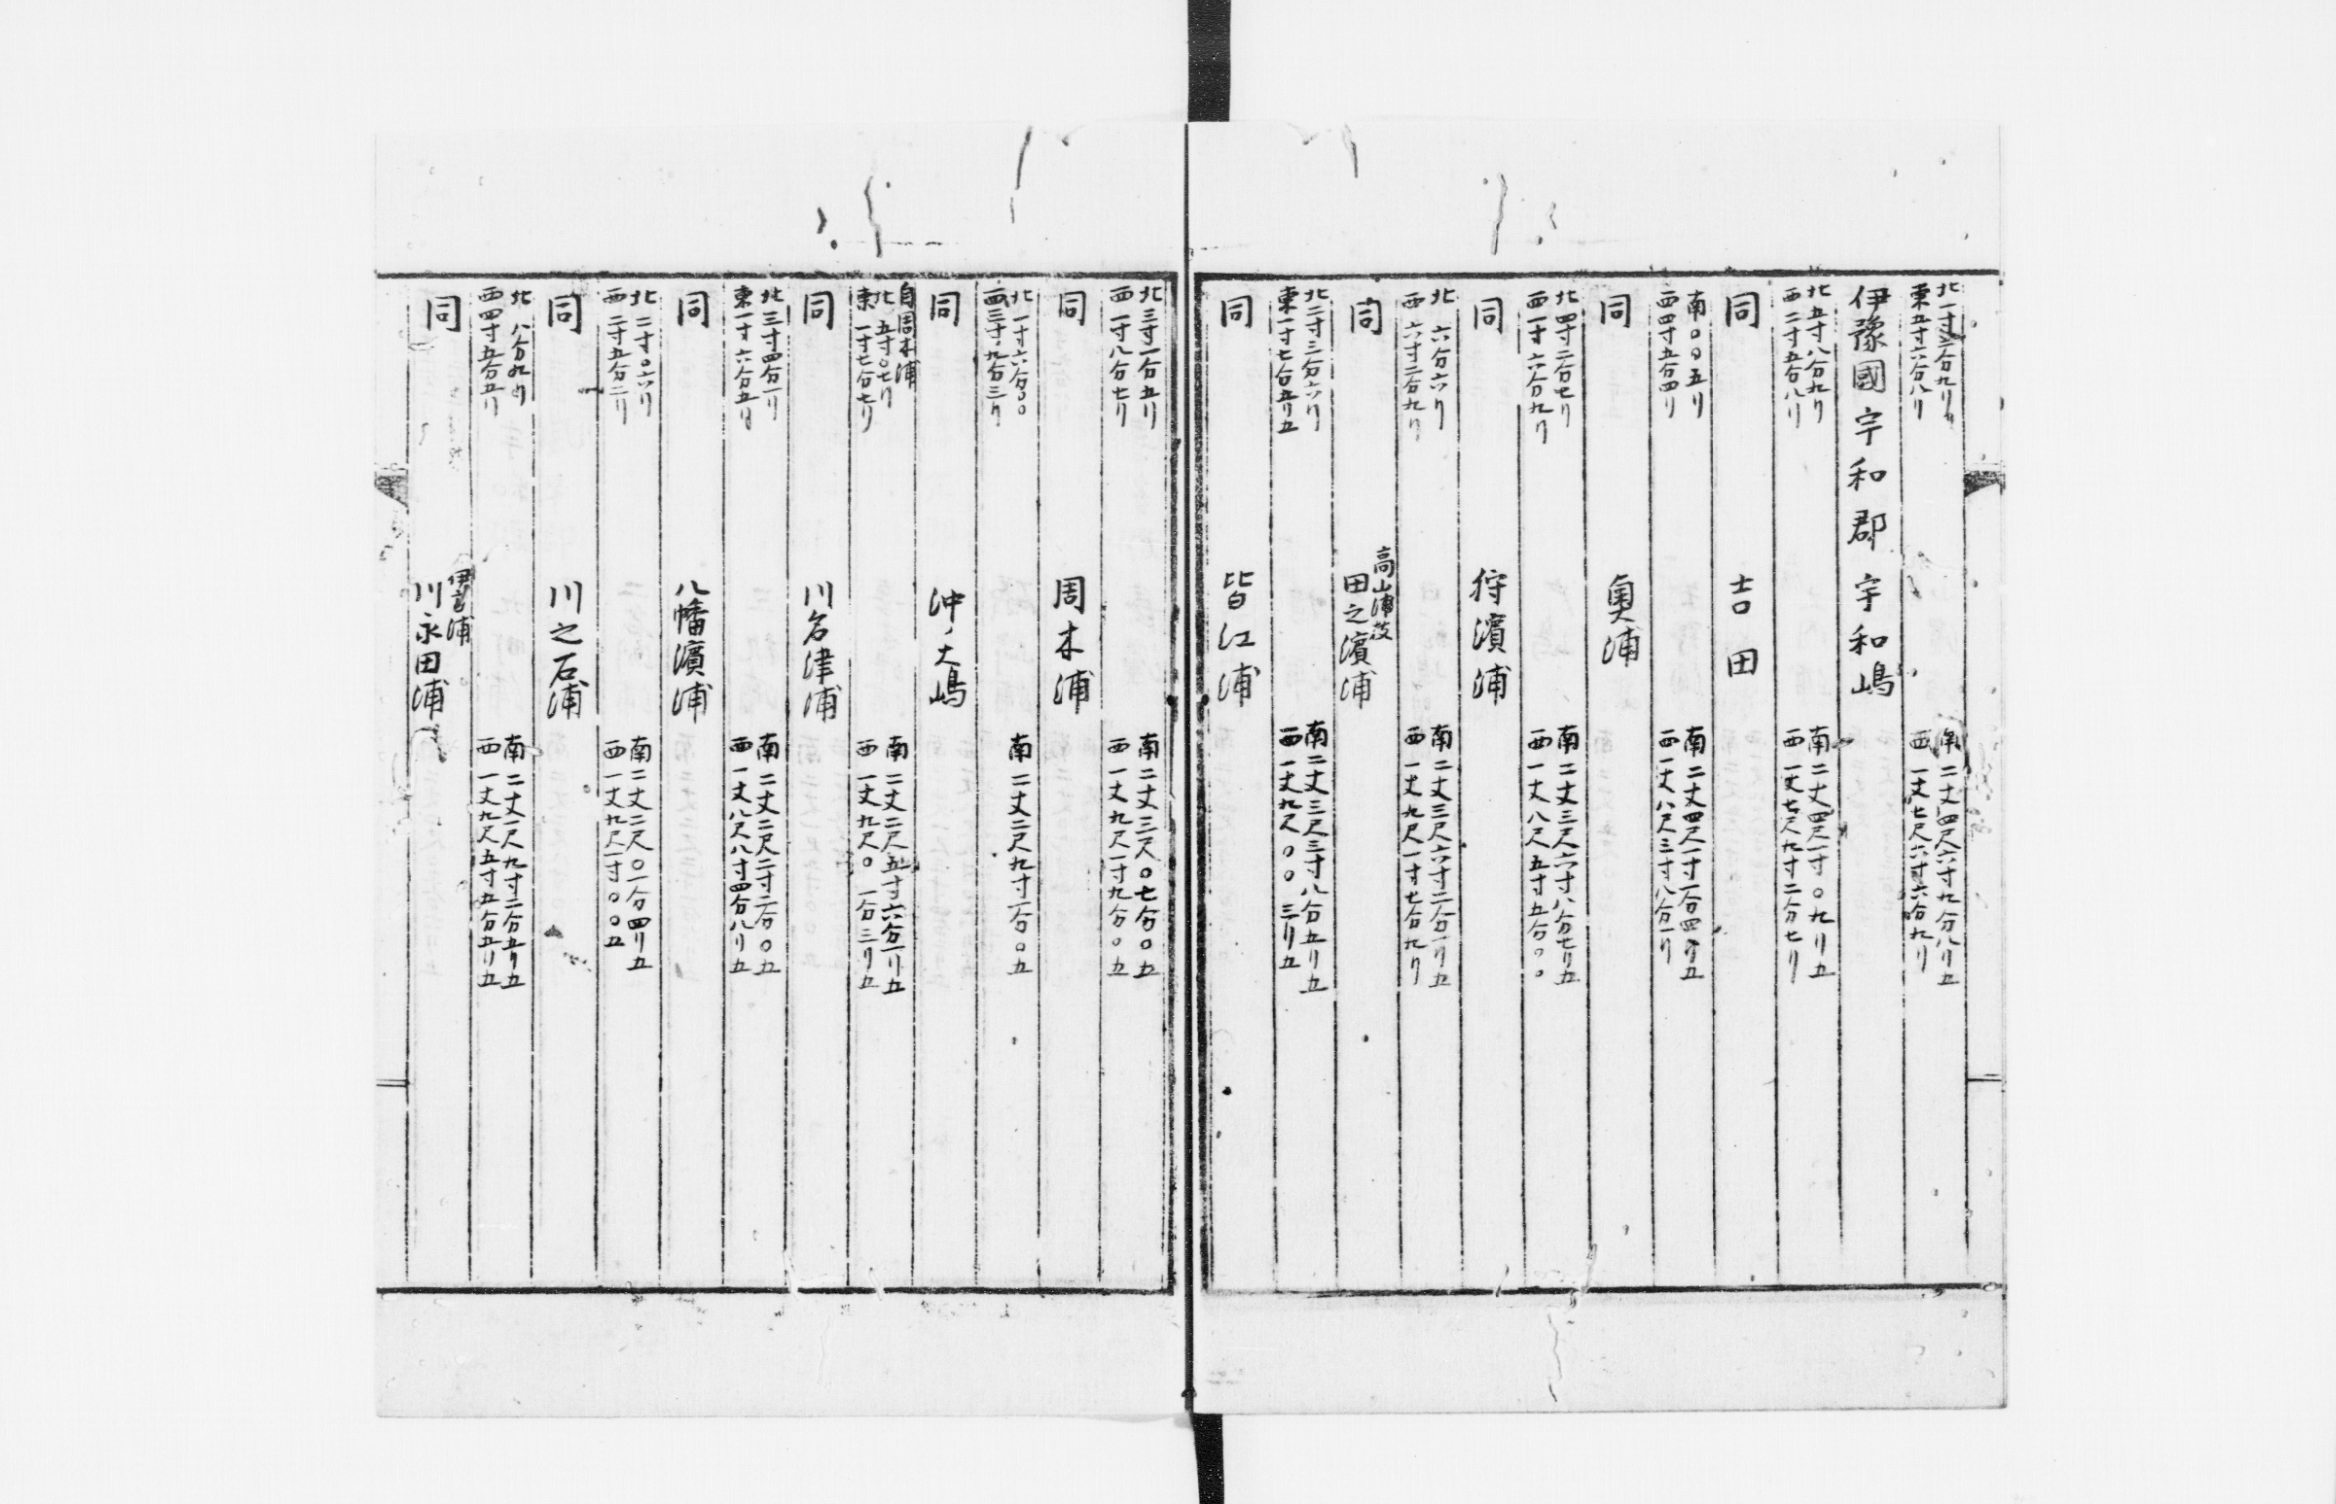 北一寸二分九リ
東五寸六分八リ
南二丈四尺六寸九分八リ五
西一丈七尺六寸六分九リ
伊豫國宇和郡宇和嶋
北五寸八分九リ
西二寸五分八リ
南二丈四尺一寸〇九リ五
西一丈七尺九寸二分七リ
同 吉田
南〇〇五リ
西四寸五分四リ
南二丈四尺一寸一分四リ五
西一丈八尺三寸八分一リ
同 奧浦
北四寸二分七リ
西一寸六分九リ
南二丈三尺六寸八分七リ五
西一丈八尺五寸五分〇〇
同 狩濱浦
北六分六リ
西六寸二分九リ
南二丈三尺六寸二分一リ五
西一丈九尺一寸七分九リ
同 高山浦枝
田之濱浦
北二寸三分六リ
東一寸七分五リ五
南二丈三尺三寸八分五リ五
西一丈九尺〇〇三リ五
同 皆江浦
北三寸一分五リ
西一寸八分七リ
南二丈三尺〇七分〇五
西一丈九尺一寸九分〇五
同 周木浦
北一寸六分〇〇
西三寸九分三リ
南二丈二尺九寸一分〇五
同 沖ノ大嶋
自周木浦
北五寸〇七リ
東一寸七分七リ
南二丈二尺五寸六分一リ五
西一丈九尺〇一分三リ五
同 川名津浦
北三寸四分一リ
東一寸六分五リ
南二丈二尺二寸二分〇五
西一丈八尺八寸四分八リ五
同 八幡濱浦
北二寸〇六リ
西二寸五分二リ
南二丈二尺〇一分四リ五
西一丈九尺一寸〇〇五
同 川之石浦
北八分九リ
西四寸五分五リ
南二丈一尺九寸二分五リ五
西一丈九尺五寸五分五リ五
同 伊方浦
川永田浦